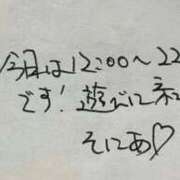 今日は12:00〜22
です!遊びに来
そにあ♡